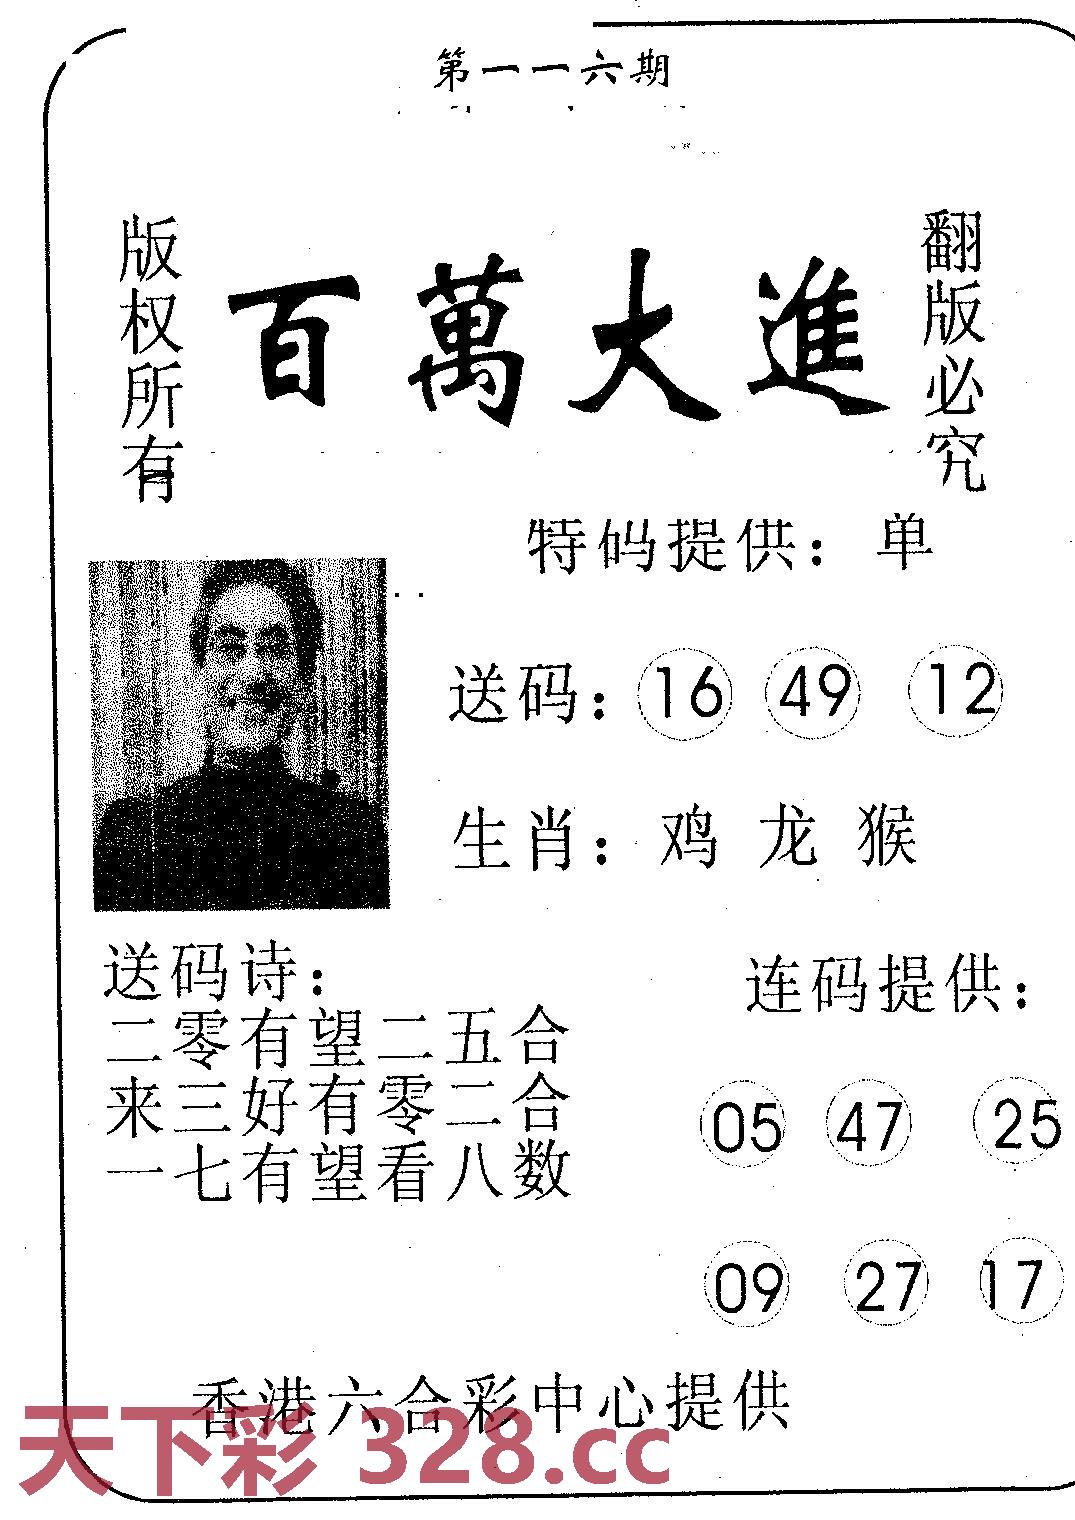 第一一六期
版权所有
百萬大進
翻版必究
特码提供：单
送码：16 49 12
生肖：鸡 龙 猴
送码诗：
二零有望二五合
来三好有零二合
一七有望看八数
连码提供：
05 47 25
09 27 17
香港六合彩中心提供
天下彩 328.cc